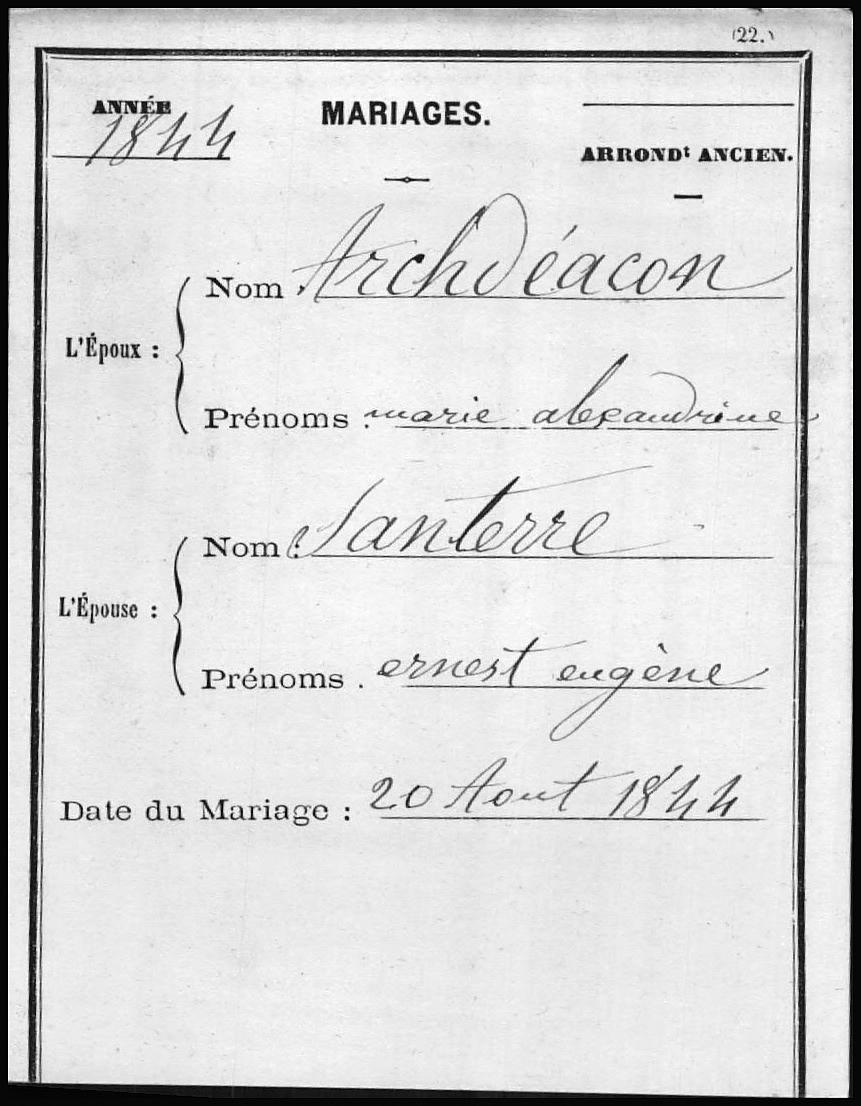 (22.)
ANNÉE
1844
MARIAGES.
ARRONDt ANCIEN.
L'Époux :
Nom : Archdéacon
Prénoms : marie alexandrine
L'Épouse :
Nom : Santerre
Prénoms . ernest eugène
Date du Mariage : 20 Aout 1844